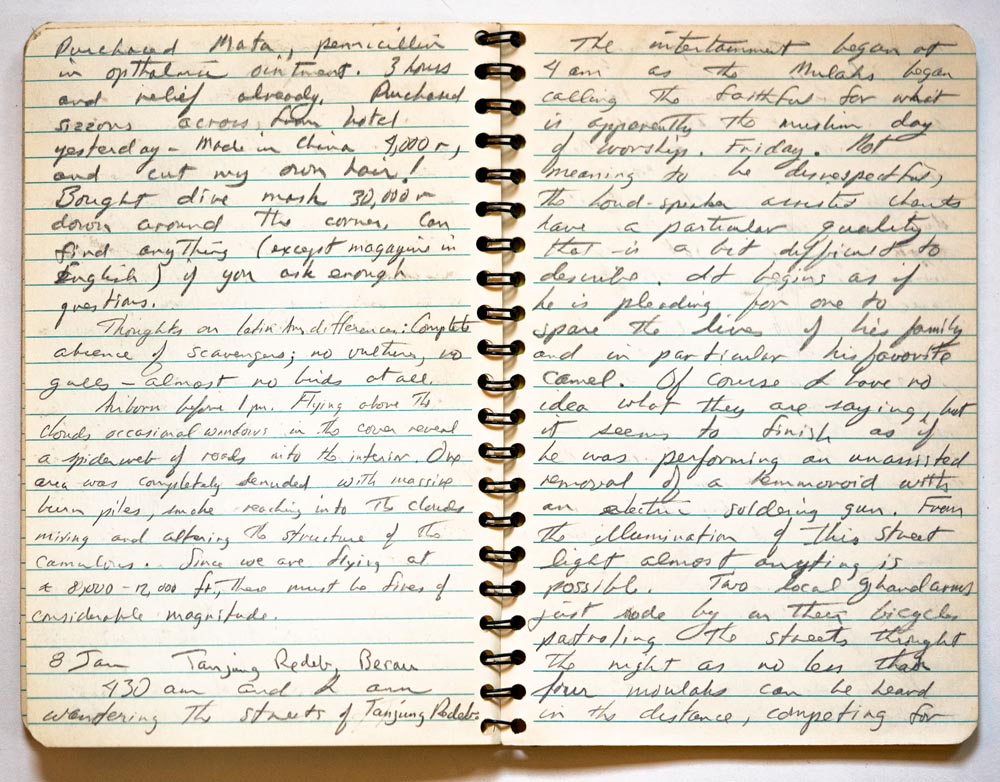 Purchased Mata, pennicillin
in opthalmic ointment. 3 hours
and relief already. Purchased
sizzors across from hotel
yesterday - made in China 9,000 r,
and cut my own hair!
Bought dive mask 30,000 r
down around the corner. Can
find anything (except magazine in
English) if you ask enough
questions.
Thoughts on latin differences: Complete
absence of scavengers; no vultures, no
gulls - almost no birds at all.
Airborn before 1 pm. Flying above the
clouds occasional windows in the cover reveal
a spiderweb of roads into the interior. One
area was completely denuded with massive
burn piles, smoke reaching into the clouds
mixing and altering the structure of the
cumulous. Since we are flying at
≈ 8,000 - 12,000 ft, there must be fires of
considerable magnitude.
8 Jan Tanjung Redeb, Berau
430 am and I am
wandering the streets of Tanjung Redeb.
The intertainment began at
4 am as the Mulahs began
calling the faithful for what
is apparently the muslim day
of worship. Friday. Not
meaning to be disrespectful,
the loud-speaker assisted chants
have a particular quality
that is a bit difficult to
describe. It begins as if
he is pleading for one to
spare the lives of his family
and in particular his favorite
camel. Of course I have no
idea what they are saying, but
it seems to finish as if
he was performing an unassisted
removal of a hemmoroid with
an electric soldering gun. From
the illumination of this street
light almost anyting is
possible. Two local ghandarms
just rode by on their bicycles
patroling the streets throught
the night as no less than
four moulahs can be heard
in the distance, competing for